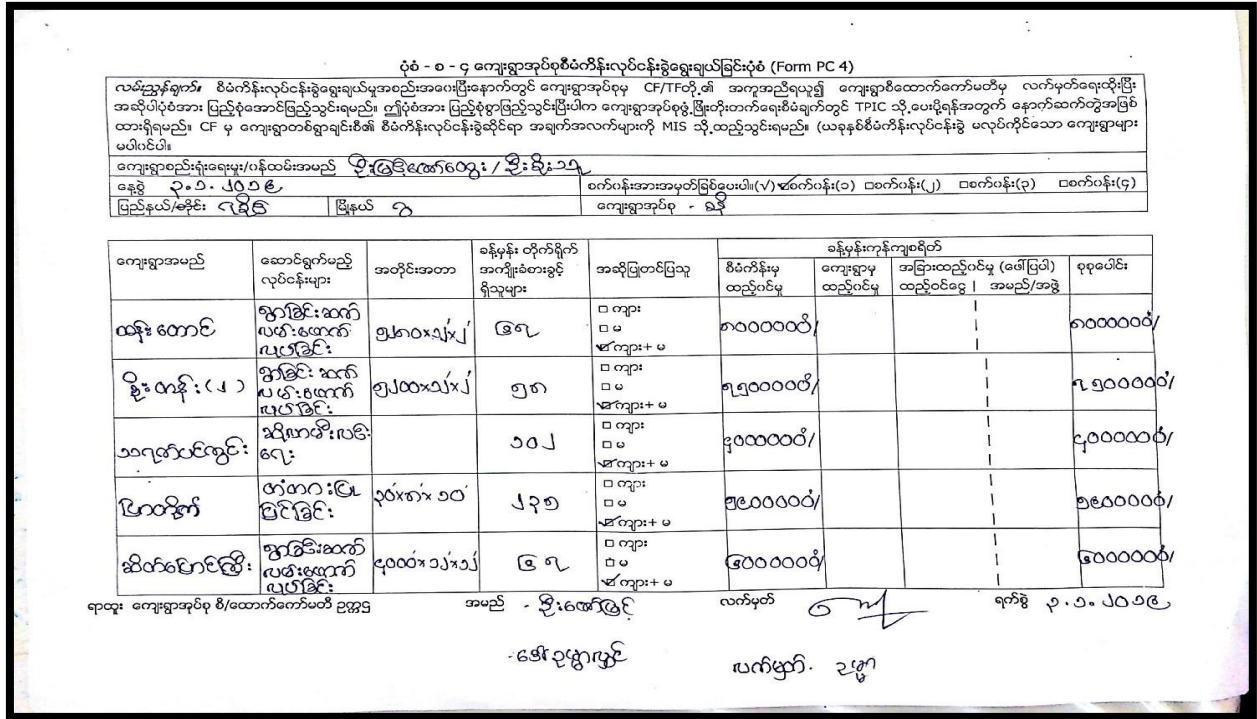 ပုံစံ - စ - ၄ ကျေးရွာအုပ်စုစီမံကိန်းလုပ်ငန်းခွဲရွေးချယ်ခြင်းပုံစံ (Form PC 4)
လမ်းညွှန်ချက်။ စီမံကိန်းလုပ်ငန်းခွဲရွေးချယ်မှုအစည်းအဝေးပြီးနောက်တွင် ကျေးရွာအုပ်စုမှ CF/TFတို့၏ အကူအညီရယူ၍ ကျေးရွာစီထောက်ကော်မတီမှ လက်မှတ်ရေးထိုးပြီး
အဆိုပါပုံစံအား ပြည့်စုံအောင်ဖြည့်သွင်းရမည်။ ဤပုံစံအား ပြည့်စုံစွာဖြည့်သွင်းပြီးပါက ကျေးရွာအုပ်စုဖွံ့ဖြိုးတိုးတက်ရေးစီမံချက်တွင် TPIC သို့ပေးပို့ရန်အတွက် နောက်ဆက်တွဲအဖြစ်
ထားရှိရမည်။ CF မှ ကျေးရွာတစ်ရွာချင်းစီ၏ စီမံကိန်းလုပ်ငန်းခွဲဆိုင်ရာ အချက်အလက်များကို MIS သို့ထည့်သွင်းရမည်။ (ယခုနှစ်စီမံကိန်းလုပ်ငန်းခွဲ မလုပ်ကိုင်သော ကျေးရွာများ
မပါဝင်ပါ။
ကျေးရွာစည်းရုံးရေးမှူး/ဝန်ထမ်းအမည် ဦးမြင့်ဇော်ထွေး / ဦးစိုးသူ
နေ့စွဲ ၃.၁.၂၀၁၉ စက်ဝန်းအားအမှတ်ခြစ်ပေးပါ။(√) ☑စက်ဝန်း(၁) □စက်ဝန်း(၂) □စက်ဝန်း(၃) □စက်ဝန်း(၄)
ပြည်နယ်/တိုင်း ရခိုင် မြို့နယ် ဂွ ကျေးရွာအုပ်စု -
ကျေးရွာအမည် ဆောင်ရွက်မည့် လုပ်ငန်းများ အတိုင်းအတာ ခန့်မှန်း တိုက်ရိုက် အကျိုးခံစားခွင့် ရှိသူများ အဆိုပြုတင်ပြသူ ခန့်မှန်းကုန်ကျစရိတ်
စီမံကိန်းမှ ထည့်ဝင်မှု ကျေးရွာမှ ထည့်ဝင်မှု အခြားထည့်ဝင်မှု (ဖော်ပြပါ) ထည့်ဝင်ငွေ | အမည်/အဖွဲ့ စုစုပေါင်း
ထန်းတောင် ရွာချင်းဆက် လမ်းဖောက် လုပ်ခြင်း ၅၂၈၀×၁၂×၂ ၆၇ □ ကျား □ မ ☑ ကျား+ မ ၈၀၀၀၀၀၀ိ/ ၈၀၀၀၀၀၀ိ/
ဦးတန်း(၂) ရွာချင်းဆက် လမ်းဖောက် လုပ်ခြင်း ၅၂၀၀×၁၂×၂ ၅၈ □ ကျား □ မ ☑ ကျား+ မ ၇၅၀၀၀၀၀ိ/ ၇၅၀၀၀၀၀ိ/
သရက်ပင်ကွင်း ဆိုလာမီးလင်းရေး ၁၀၂ □ ကျား □ မ ☑ ကျား+ မ ၄၀၀၀၀၀၀ိ/ ၄၀၀၀၀၀၀ိ/
တံတားပြုပြင်ခြင်း ၃၀'×၈'×၁၀' ၂၃၅ □ ကျား □ မ ☑ ကျား+ မ ၅၉၀၀၀၀၀ိ/ ၅၉၀၀၀၀၀ိ/
ဆိတ်ပြောင်ကြီး ရွာချင်းဆက် လမ်းဖောက် လုပ်ခြင်း ၄၀၀၀×၁၂×၁၂ ၆၇ □ ကျား □ မ ☑ ကျား+ မ ၆၀၀၀၀၀၀ိ/ ၆၀၀၀၀၀၀ိ/
ရာထူး ကျေးရွာအုပ်စု စီ/ထောက်ကော်မတီ ဥက္ကဋ္ဌ အမည် - ဦးဇော်မြင့် လက်မှတ် ရက်စွဲ ၃.၁.၂၀၁၉
- ဒေါ်ဥမ္မာလွင် လက်မှတ်. ဥမ္မာ